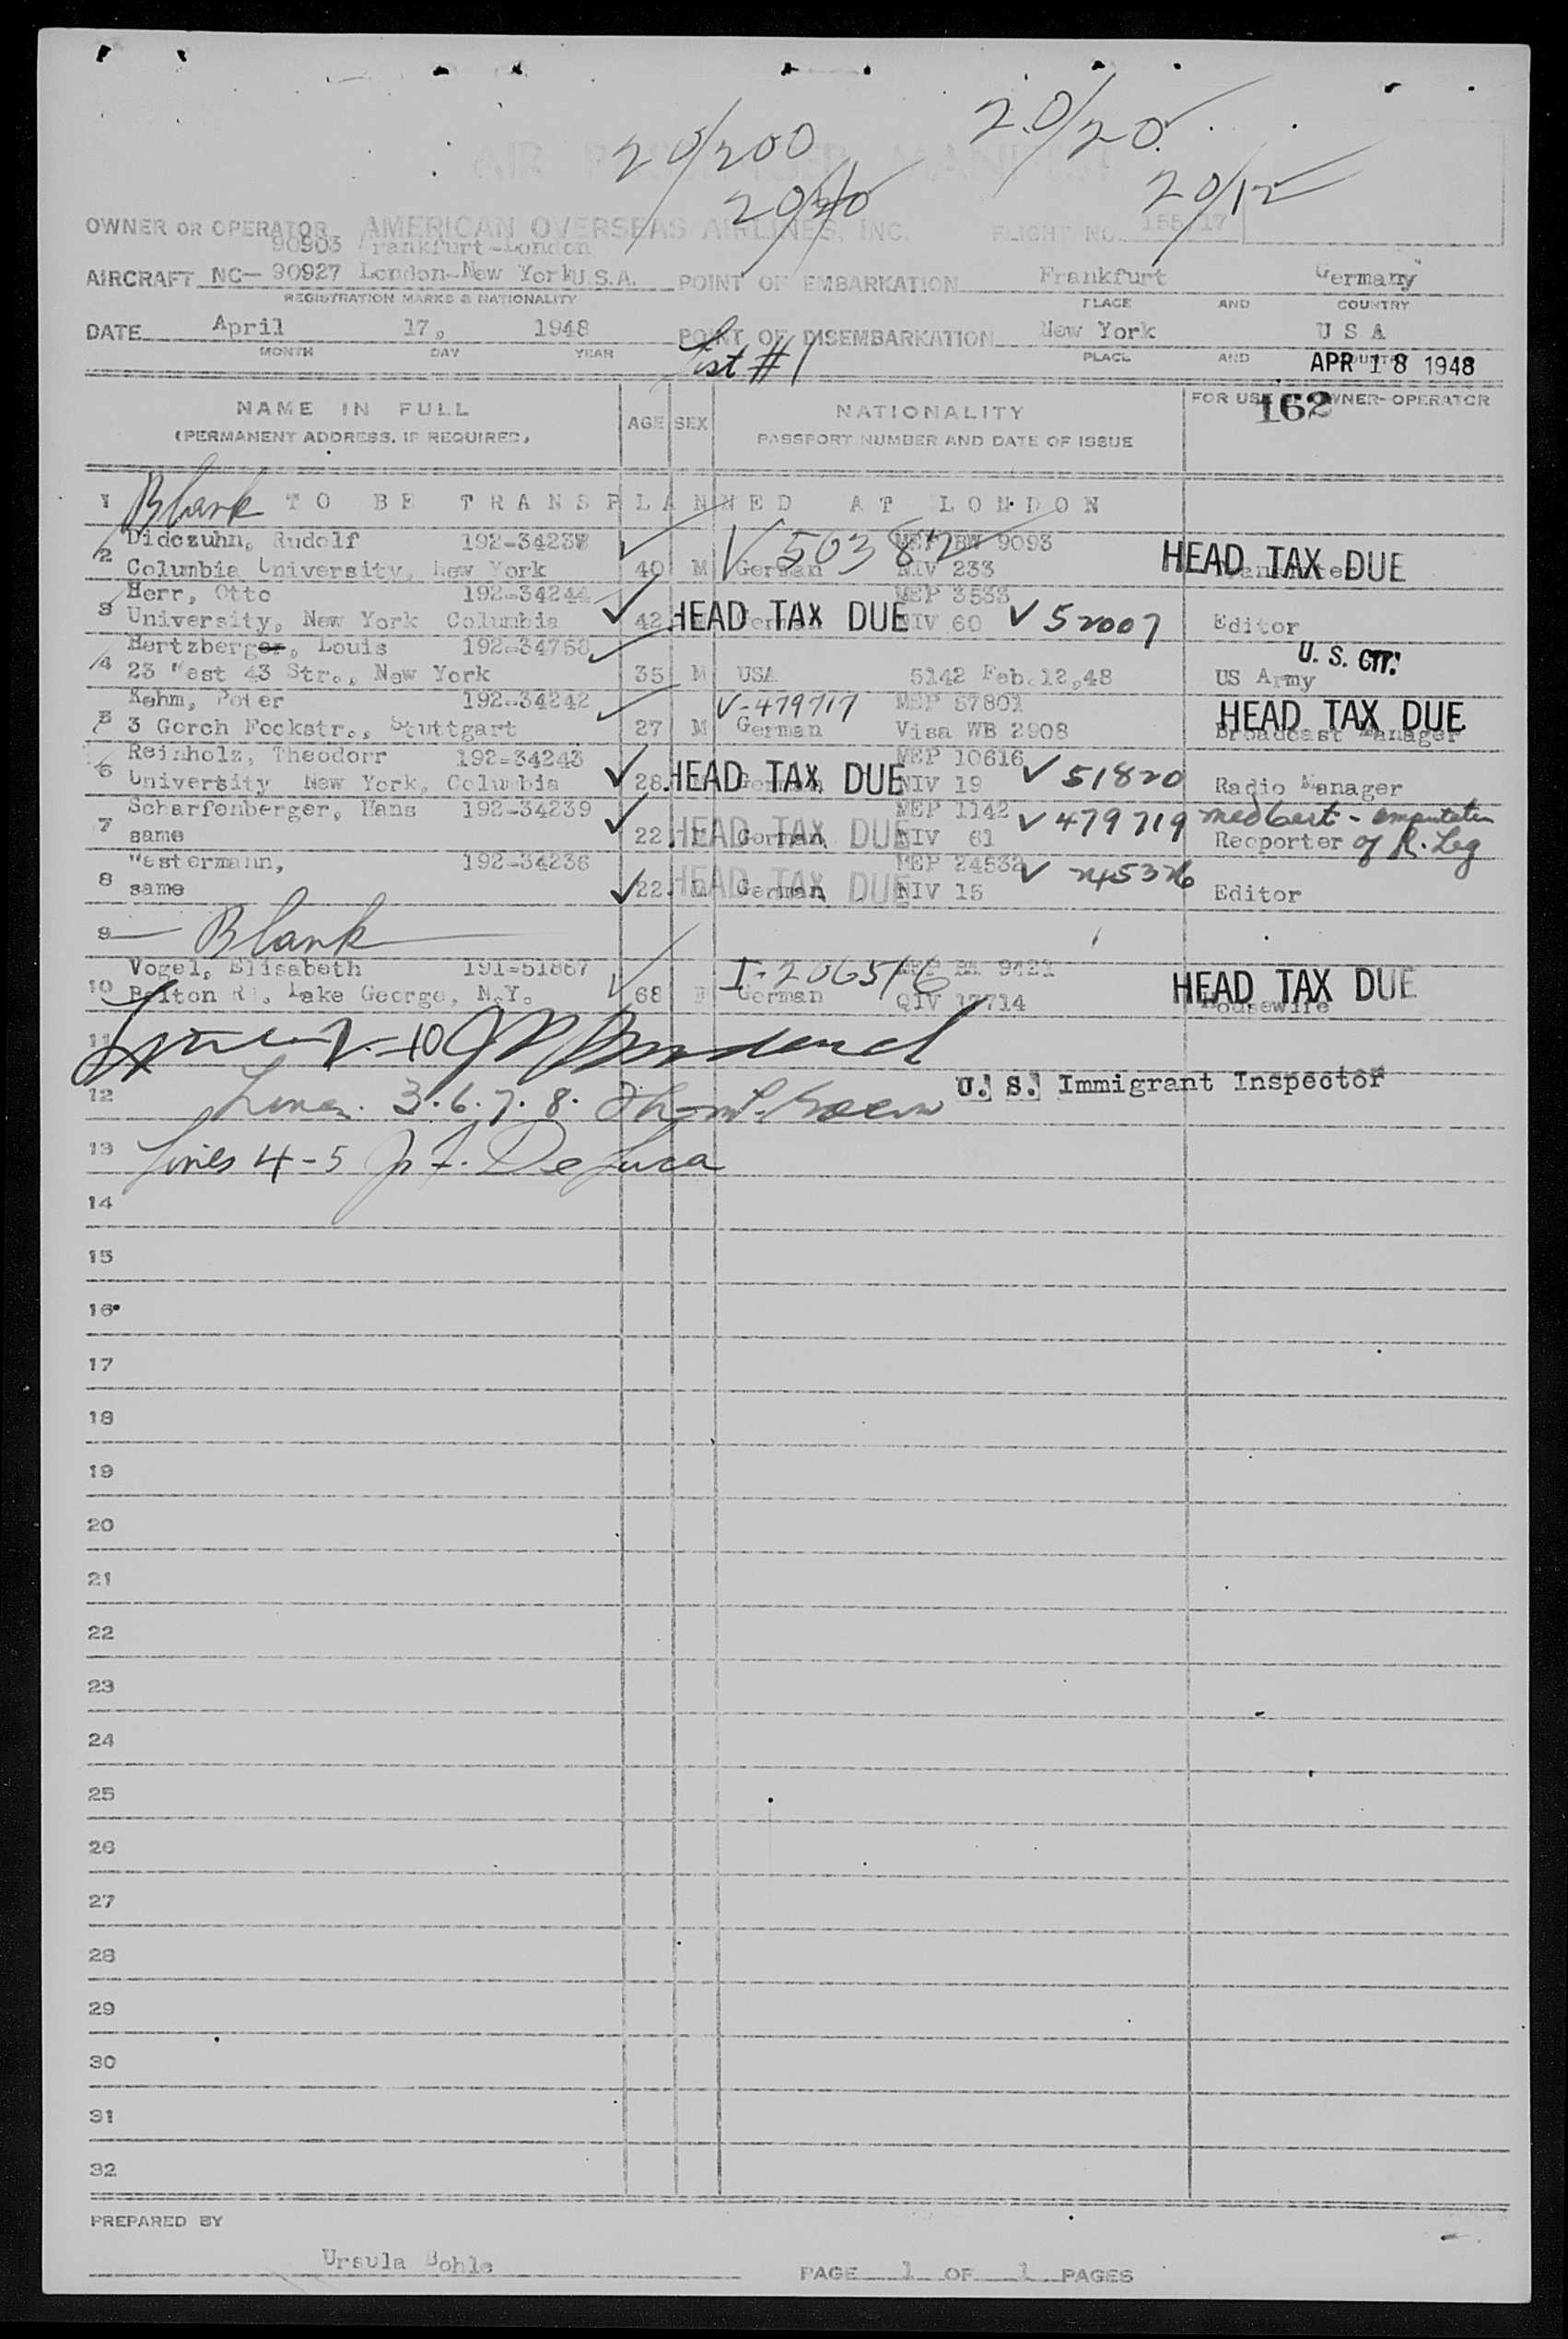 20/200
20/20
20/40
20/12
AIR PASSENGER MANIFEST
OWNER OR OPERATOR AMERICAN OVERSEAS AIRLINES, INC. FLIGHT NO. 155/17
90903 Frankfurt-London
AIRCRAFT NC- 90927 London-New York U.S.A. POINT OF EMBARKATION Frankfurt Germany
REGISTRATION MARKS & NATIONALITY PLACE AND COUNTRY
DATE April 17, 1948 POINT OF DISEMBARKATION New York U S A
MONTH DAY YEAR PLACE AND COUNTRY
List #1 APR 18 1948
NAME IN FULL AGE SEX NATIONALITY FOR USE OWNER-OPERATOR
(PERMANENT ADDRESS, IF REQUIRED) PASSPORT NUMBER AND DATE OF ISSUE 162
1 Blank TO BE TRANSPLANNED AT LONDON
Didczuhn, Rudolf 192-34237 V 50382 MEP BW 9093
2 Columbia University, New York 40 M German NIV 233 HEAD TAX DUE
Herr, Otto 192-34244 MEP 3533
3 University, New York Columbia 42 HEAD TAX DUE NIV 60 V 52007 Editor
Hertzberger, Louis 192-34758 U. S. CIT.
4 23 West 43 Str., New York 35 M USA 5142 Feb.12,48 US Army
Kehm, Peter 192-34242 V-479717 MEP 57801 HEAD TAX DUE
5 3 Gorch Fockstr., Stuttgart 27 M German Visa WB 2908 Broadcast Manager
Reinholz, Theodorr 192-34243 MEP 10616
6 University New York, Columbia 28 HEAD TAX DUE German NIV 19 V 51820 Radio Manager
Scharfenberger, Hans 192-34239 MEP 1142 V 479719 med cert - amputation
7 same 22 M HEAD TAX DUE German NIV 61 Recporter of R. Leg
Westermann, 192-34236 MEP 24532 V
8 same 22 M HEAD TAX DUE German NIV 15 Editor
9 Blank
Vogel, Elisabeth 191-51867 I-206516 MEP BA 9421
10 Bolton Rd, Lake George, N.Y. 68 F German QIV 17714 HEAD TAX DUE Housewife
11
U. S. Immigrant Inspector
12 Lines. 3. 6. 7. 8.
13 Lines 4-5 De Luca
14
15
16
17
18
19
20
21
22
23
24
25
26
27
28
29
30
31
32
PREPARED BY
Ursula Bohle PAGE 1 OF 1 PAGES